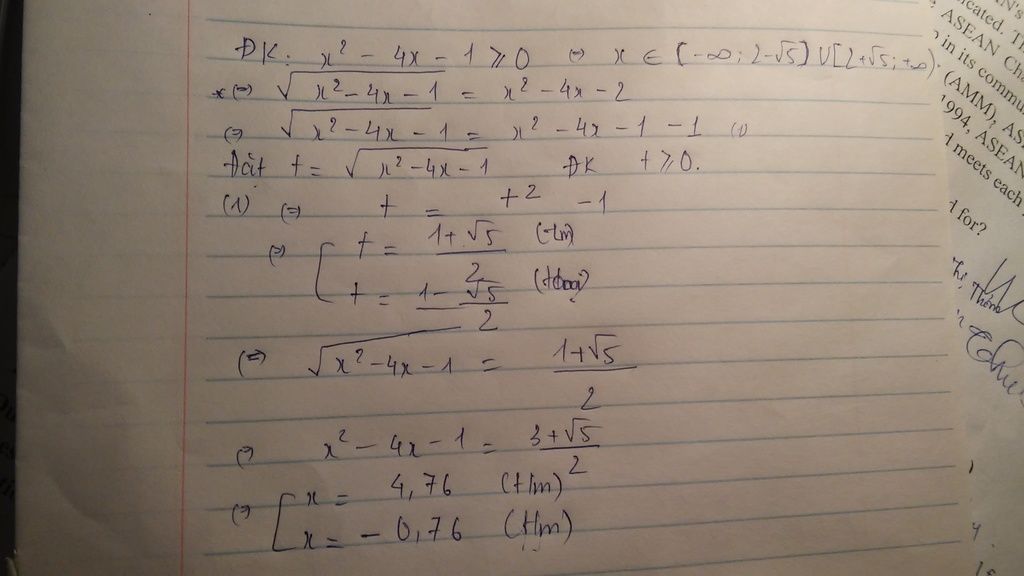 ĐK: x² - 4x - 1 ≥ 0 ⇔ x ∈ [-∞; 2-√5] ∪ [2+√5; +∞)
* ⇔ √(x² - 4x - 1) = x² - 4x - 2
⇔ √(x² - 4x - 1) = x² - 4x - 1 - 1 (1)
Đặt t = √(x² - 4x - 1) ĐK t ≥ 0.
(1) ⇔ t = t² - 1
⇔ [ t = (1+√5)/2 (tm)
t = (1-√5)/2 (loại)
⇔ √(x² - 4x - 1) = (1+√5)/2
⇔ x² - 4x - 1 = (3+√5)/2
⇔ [ x = 4,76 (t/m)
x = - 0,76 (t/m)
icated. Th
, ASEAN Cha
in its commu
(AMM), AS
1994, ASEAN
d meets each
d for?